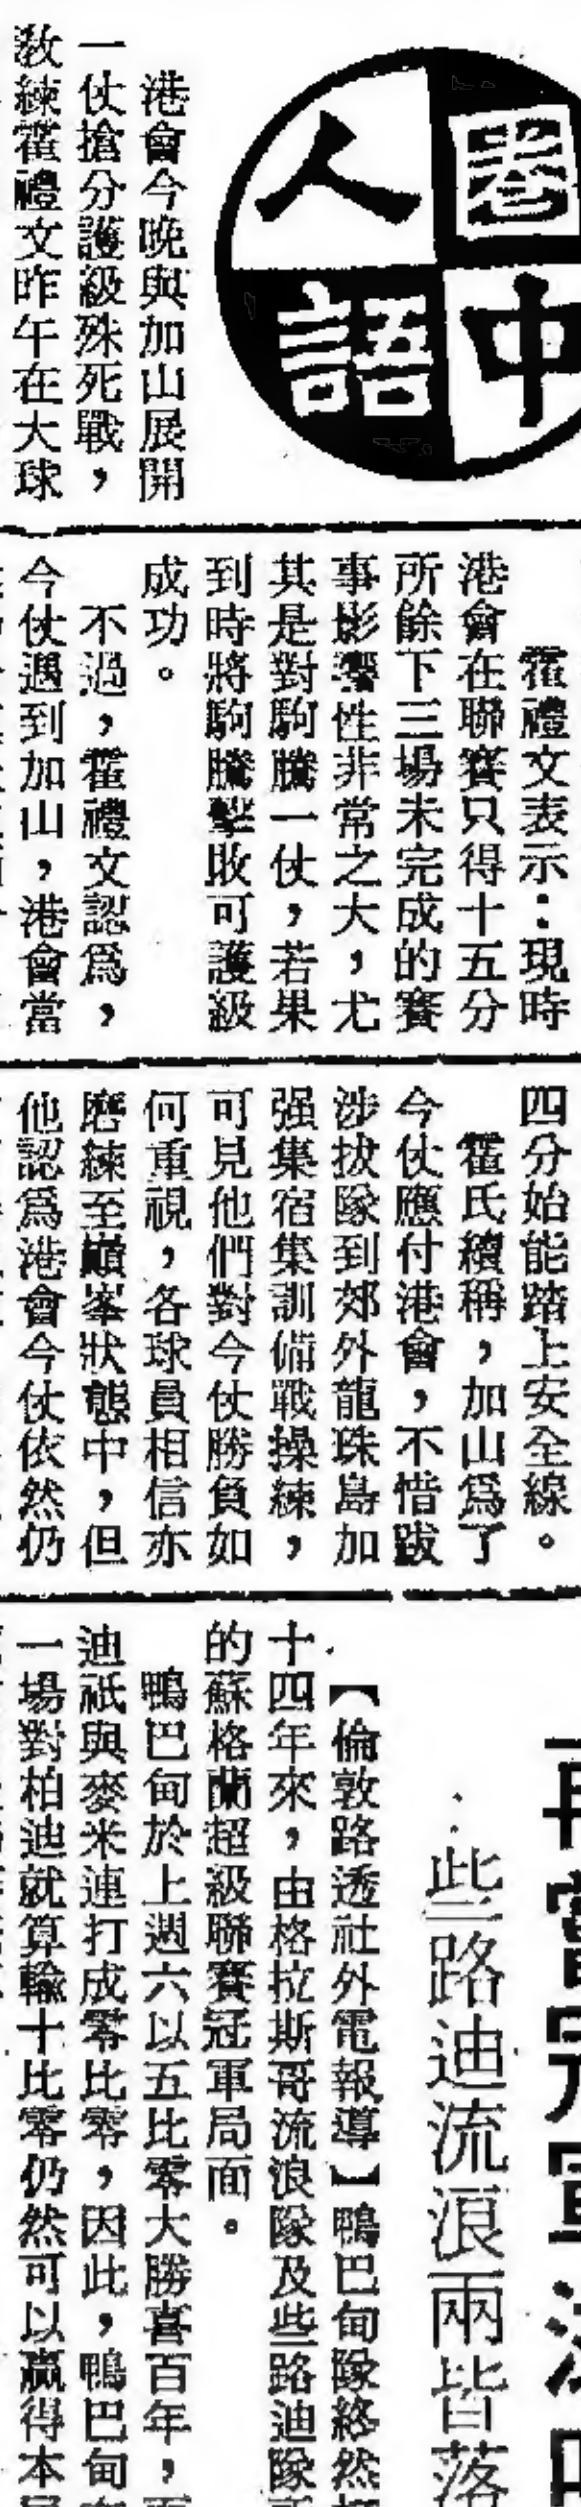 圈中人語
港會今晚與加山展開
一仗搶分護級殊死戰，
教練霍禮文昨午在大球
霍禮文表示：現時
港會在聯賽只得十五分
所餘下三場未完成的賽
事影響性非常之大，尤
其是對駒騰一仗，若果
到時將駒騰擊敗可護級
成功。
不過，霍禮文認爲，
今仗遇到加山，港會當
四分始能踏上安全線。
霍氏續稱，加山爲了
今仗應付港會，不惜跋
涉拔隊到郊外龍珠島加
强集宿集訓備戰操練，
可見他們對今仗勝負如
何重視，各球員相信亦
磨練至巔峯狀態中，但
他認爲港會今仗依然仍
些路迪流浪兩皆落
【倫敦路透社外電報導】鴨巴甸隊終然
十四年來，由格拉斯哥流浪隊及些路迪隊
的蘇格蘭超級聯賽冠軍局面。
鴨巴甸於上週六以五比零大勝喜百年，
迪祇與麥米連打成零比零，因此，鴨巴甸
一場對柏迪就算輸十比零仍然可以贏得本